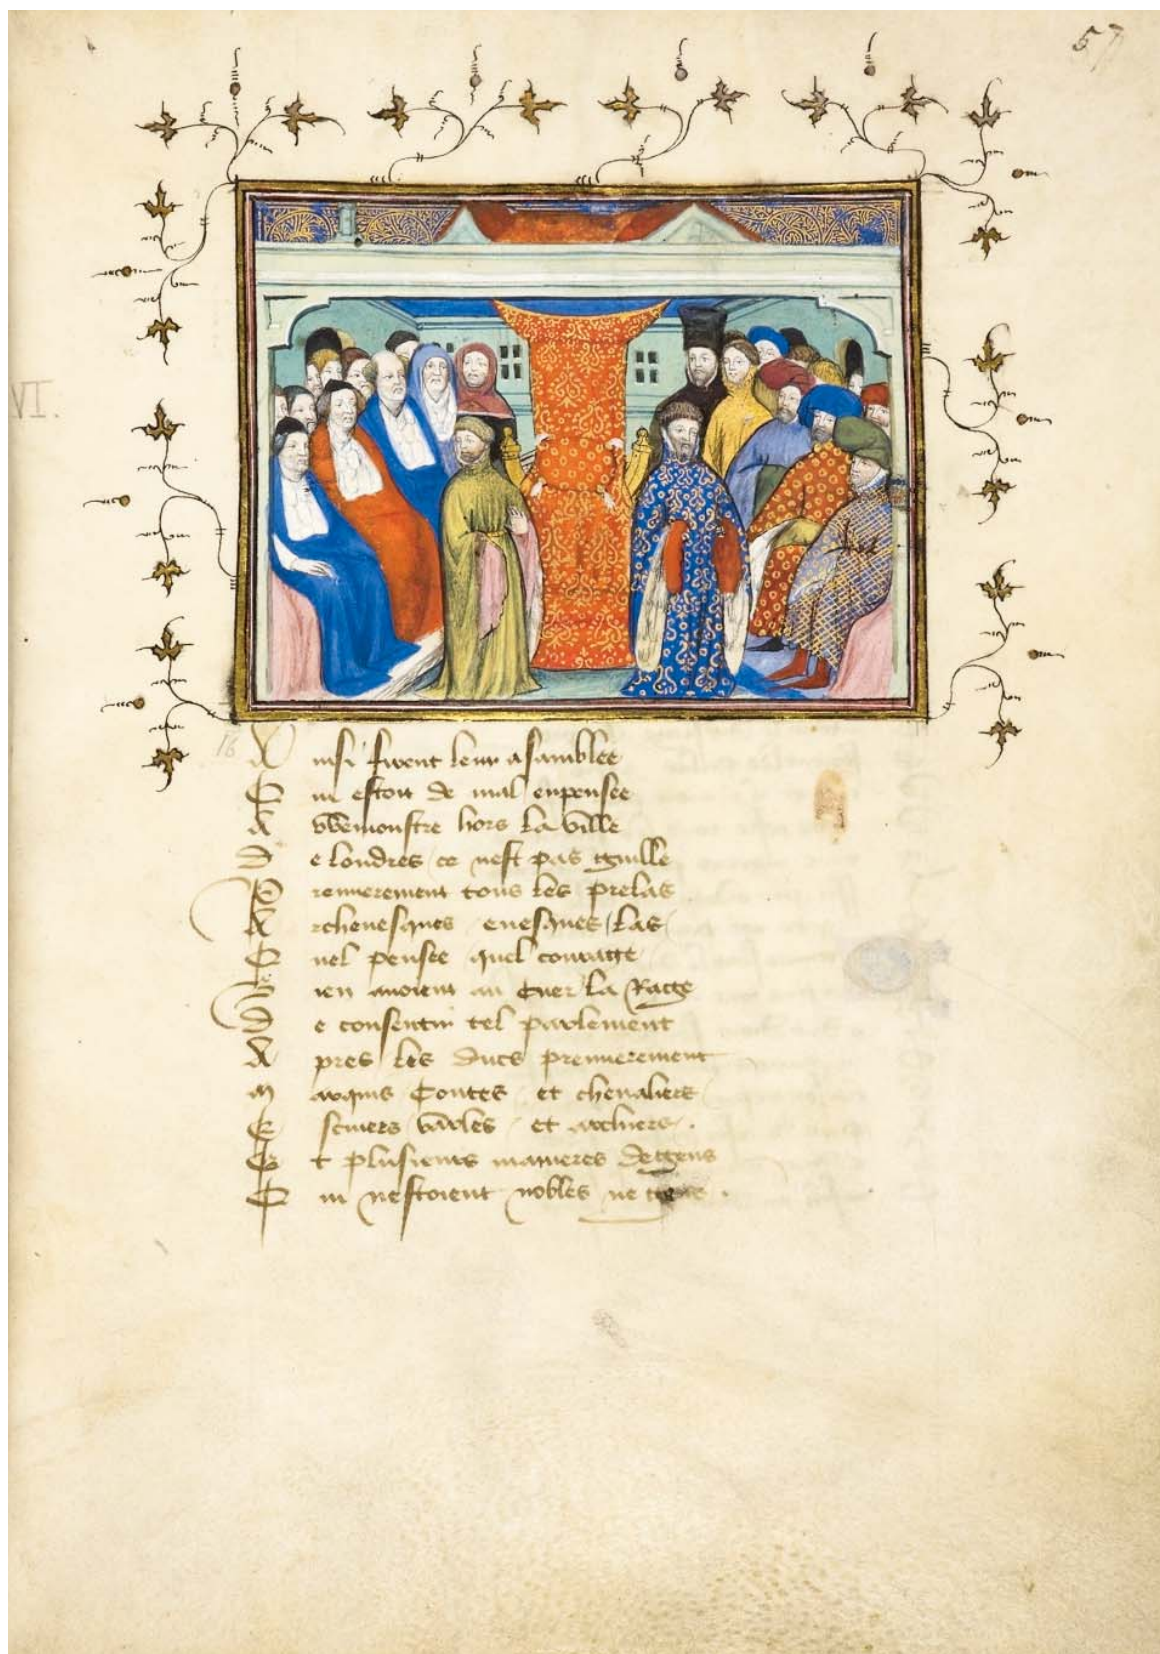 57
VI.
16
Ainsi firent leur asamblee
Qui estoit de mal enpensee
A Wemonstre hors la ville
De londres ce nest pas guille
Premierement tous les prelas
Archevesques evesques las
Quel pensee quel couraige
Bien avoient au cuer la Raige
De consentir tel parlement
Apres les ducs premierement
Marquis Contes et chevaliers
Escuiers varles et archiers.
Et plusieurs manieres de gens
Qui nestoient nobles ne gens.